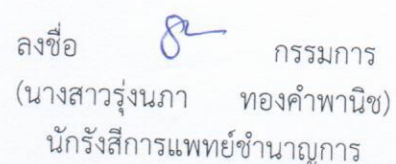 ลงชื่อ กรรมการ
(นางสาวรุ่งนภา ทองคำพานิช)
นักรังสีการแพทย์ชำนาญการ